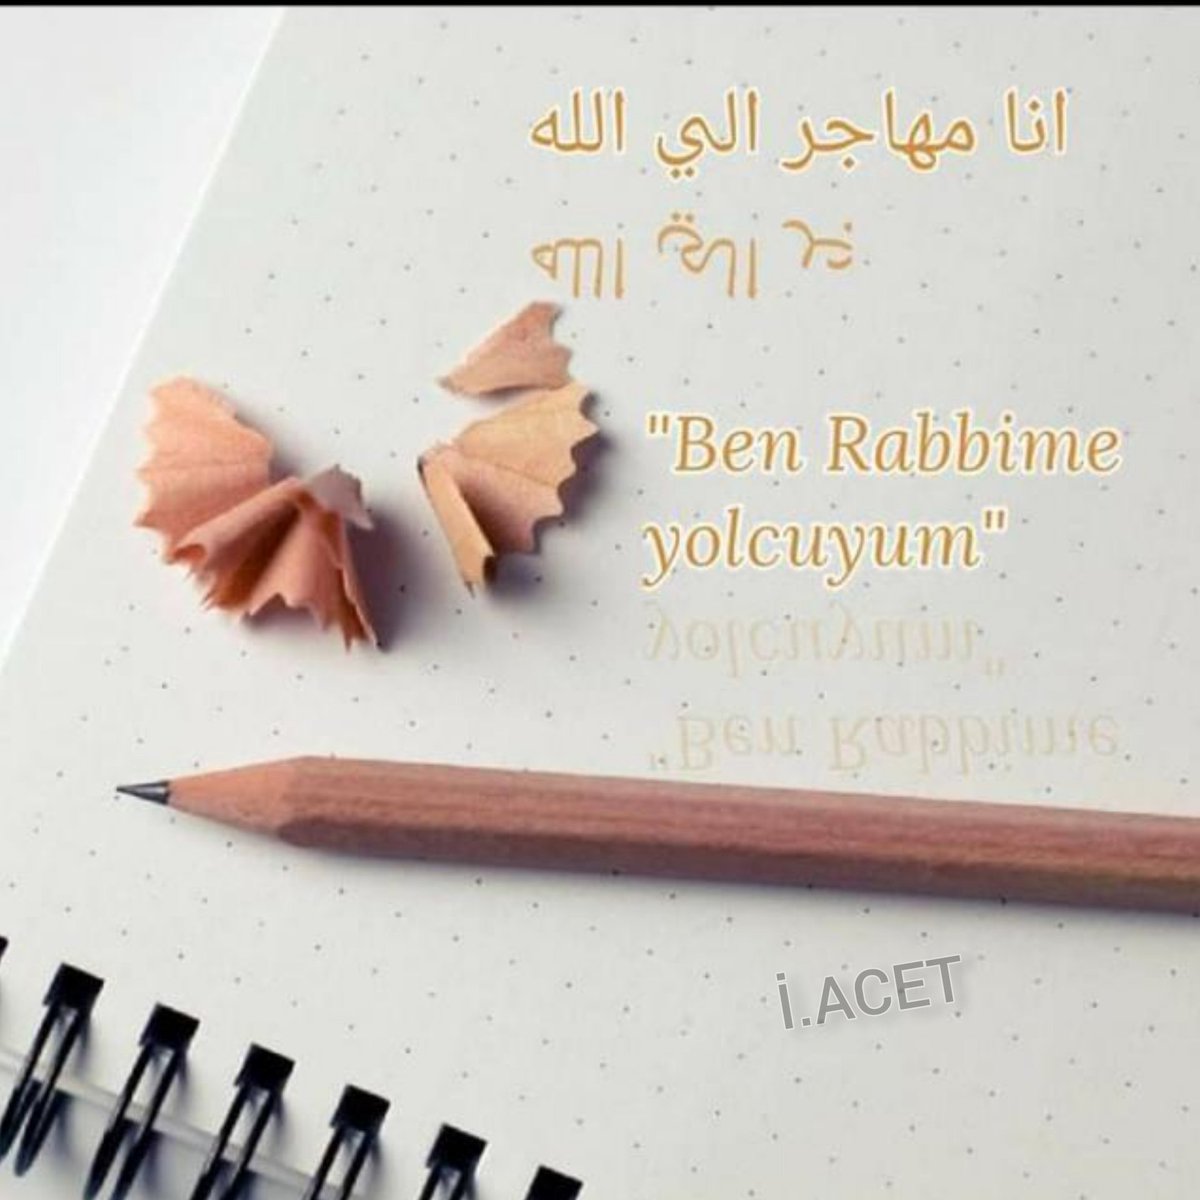 انا مهاجر الي الله
"Ben Rabbime
yolcuyum"
İ.ACET